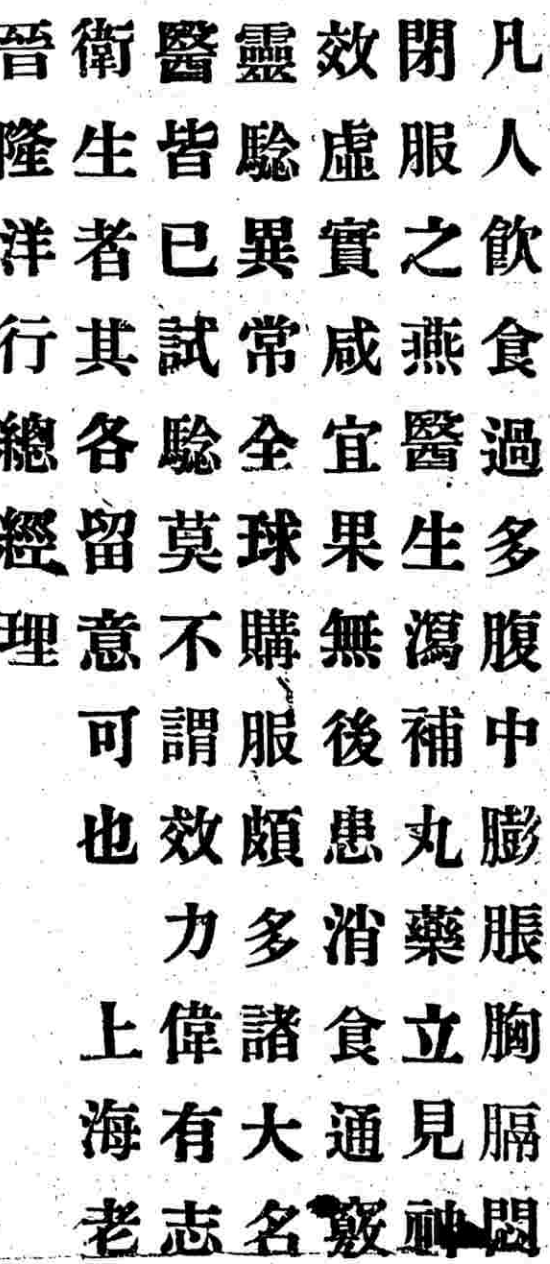 凡人飲食過多腹中膨脹胸膈悶
閉服之燕醫生瀉補丸藥立見神
效虛實咸宜果無後患消食通竅
靈騐異常全球購服頗多諸大名
醫皆已試騐莫不謂效力偉有志
衛生者其各留意可也 上海老
晉隆洋行總經理